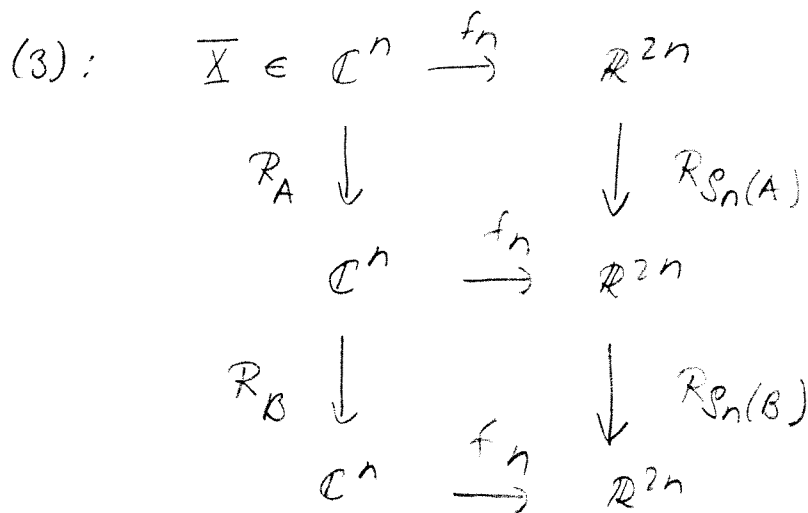 (3): X̅ ∈ ℂⁿ —fₙ→ ℝ²ⁿ
R_A ↓ ↓ R_ρₙ(A)
ℂⁿ —fₙ→ ℝ²ⁿ
R_B ↓ ↓ R_ρₙ(B)
ℂⁿ —fₙ→ ℝ²ⁿ